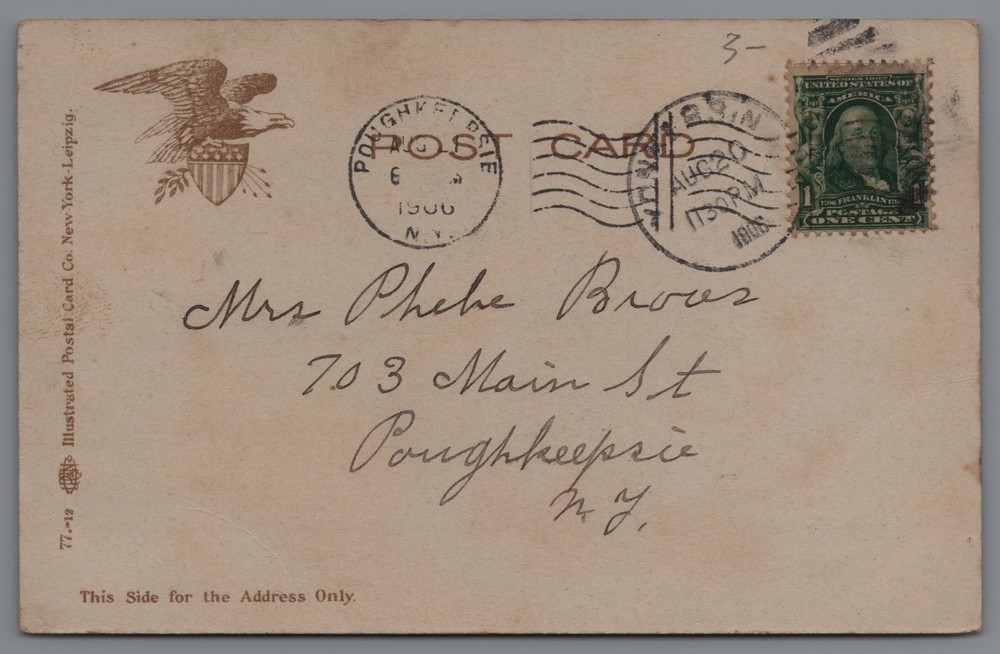 3-
POST CARD
POUGHKEEPSIE
AUG
6 M
1906
N.Y.
AUG 20
1130 PM
1906
SERIES 1902
UNITED STATES OF
AMERICA
1 FRANKLIN 1
POSTAGE
ONE CENT
Mrs Phebe
703 Main St
Poughkeepsie
N.Y.
77.-12 Illustrated Postal Card Co. New York-Leipzig.
This Side for the Address Only.